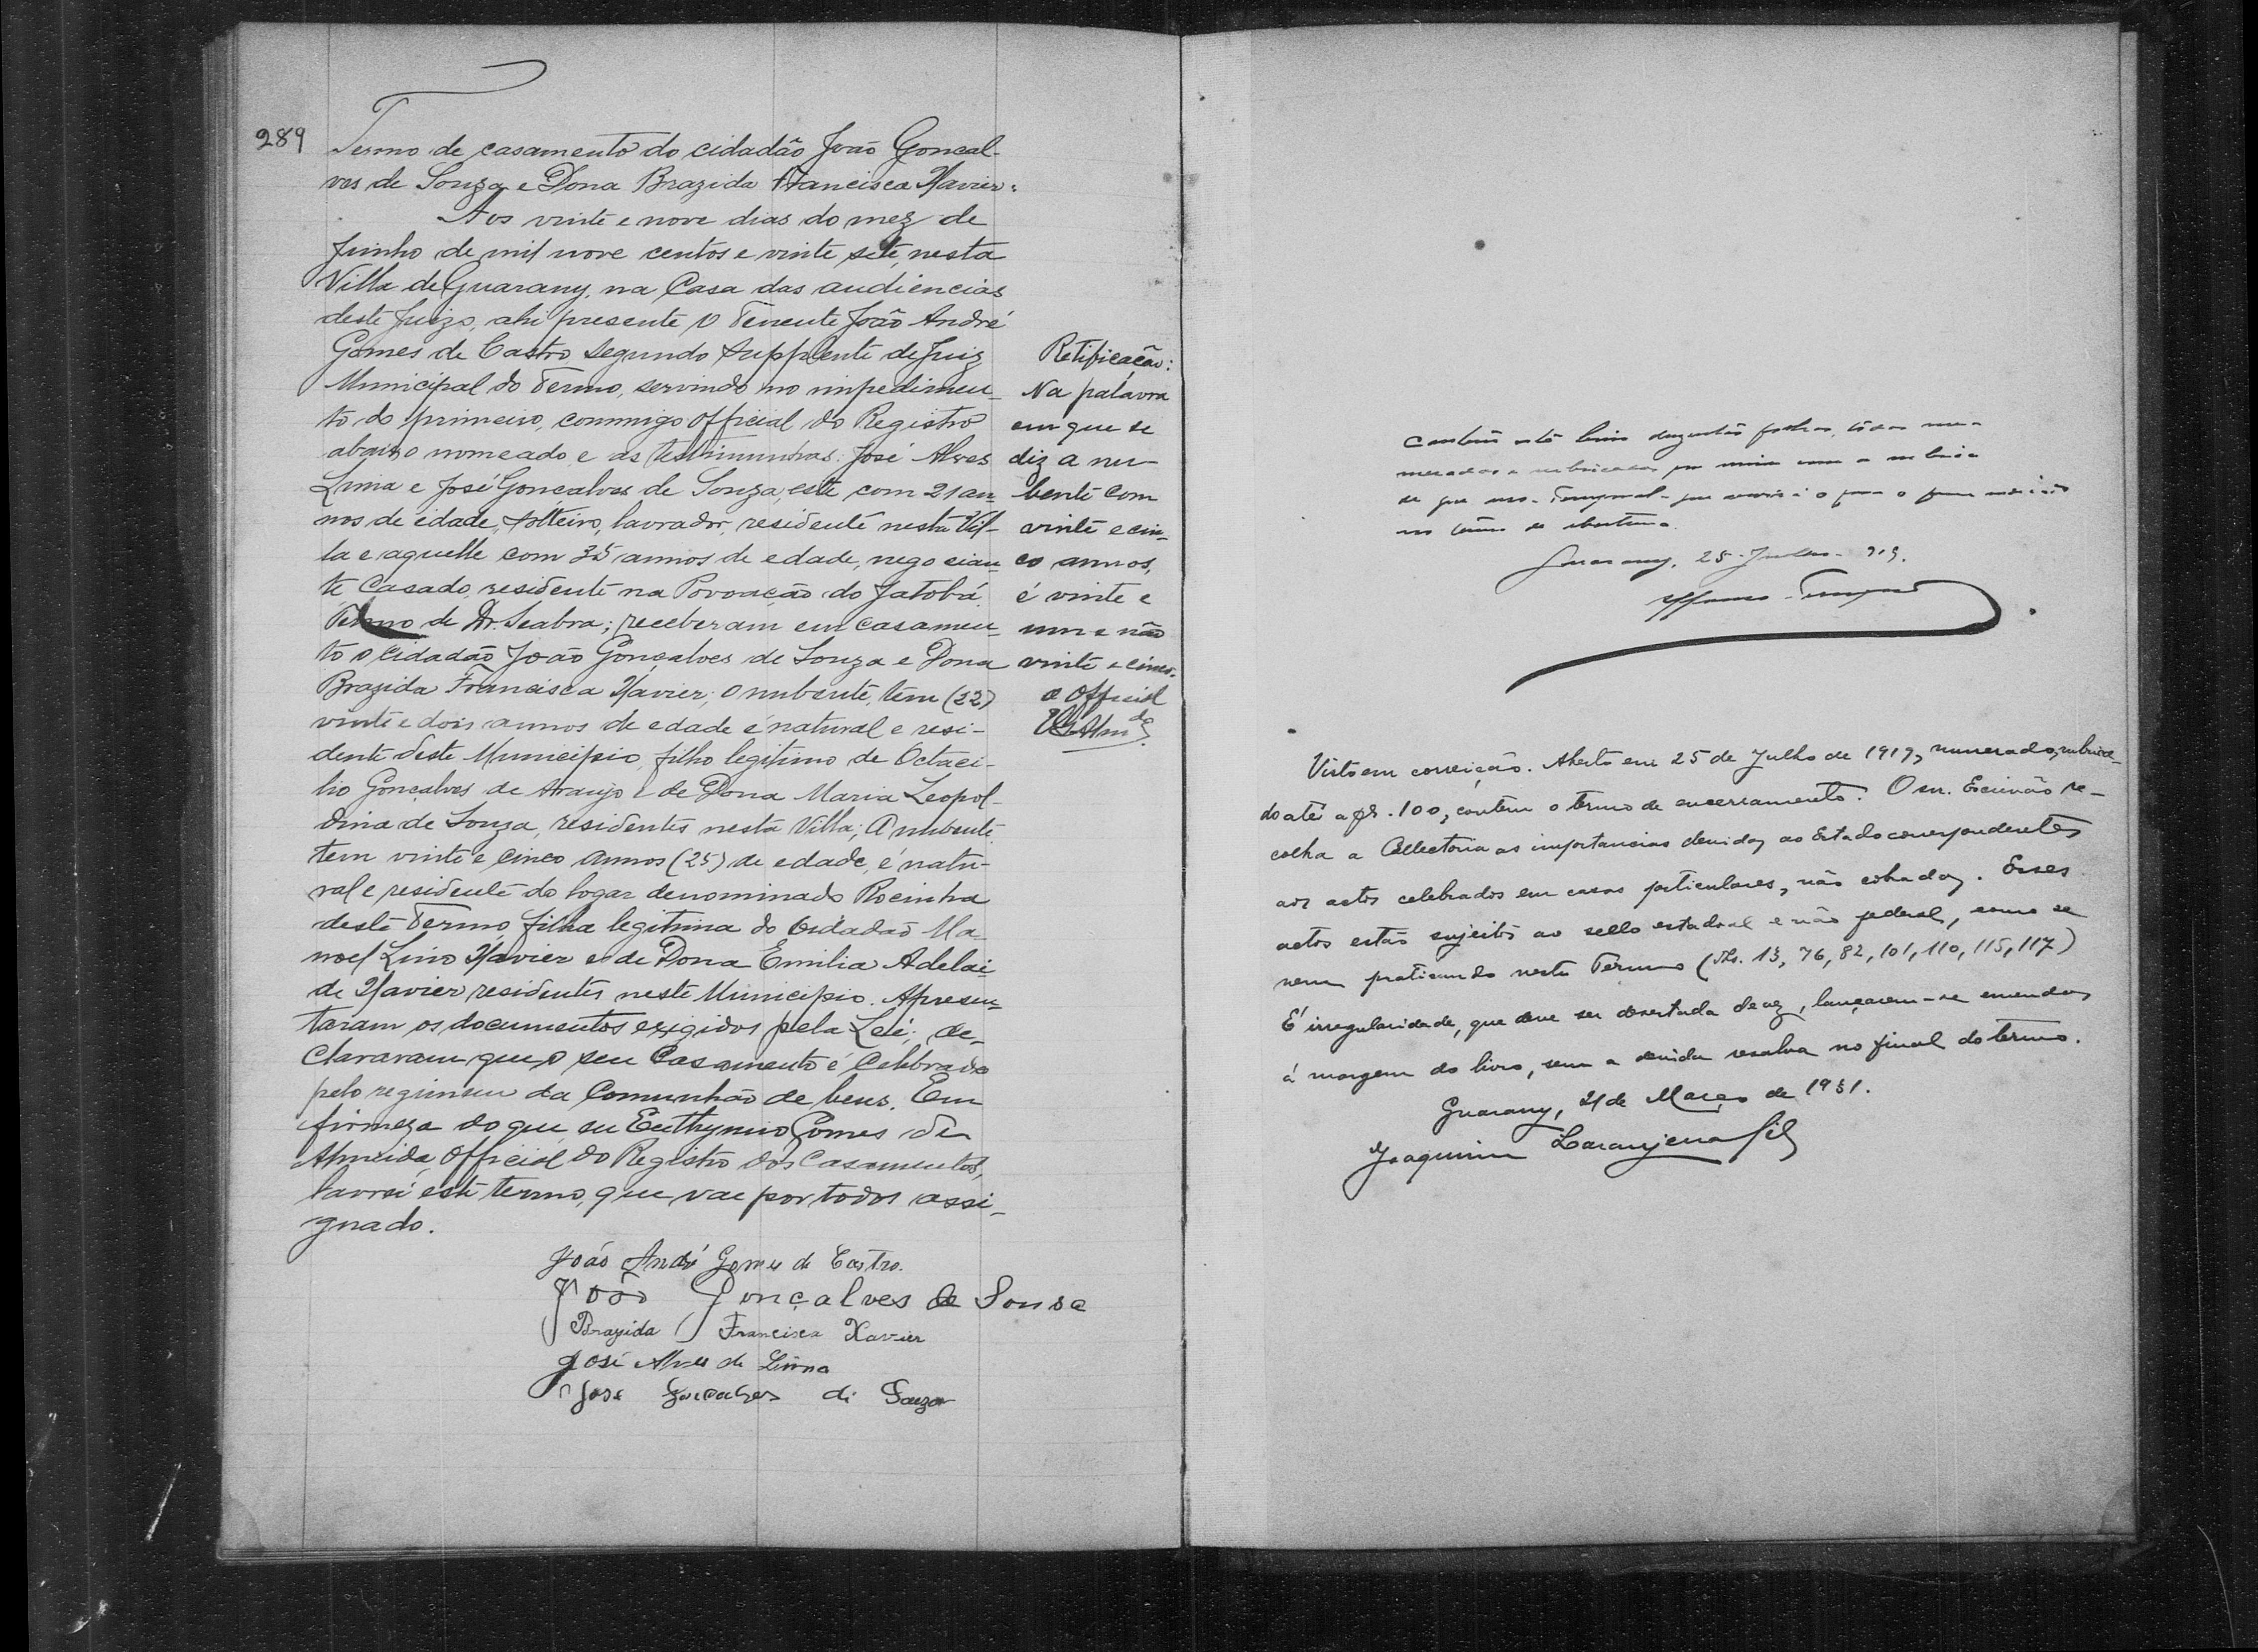 289
Termo de casamento do cidadão João Gonçal-
ves de Souza e Dona Brazida Francisca Xavier.
Aos vinte e nove dias do mez de
Junho de mil nove centos e vinte sete, nesta
Villa de Guarany, na Casa das audiencias
deste Juizo, ahi presente o Tenente João André
Gomes de Castro, segundo supplente de Juiz
Municipal do Termo, servindo no impedimen-
to do primeiro, commigo official do Registro
abaixo nomeado e as testimunhas: José Alves
Lima e José Gonçalves de Souza, este com 21 an-
nos de idade, solteiro, lavrador, residente nesta Vil-
la e aquelle com 35 annos de edade, negocian-
te casado, residente na Povoação do Jatobá
Termo de Dr. Seabra; receberam em casamen-
to o cidadão João Gonçalves de Souza e Dona
Brazida Francisca Xavier; o nubente, tem (22)
vinte e dois annos de edade é natural e resi-
dente deste Municipio, filho legitimo de Octaci-
lio Gonçalves de Araujo e de Dona Maria Leopol-
dina de Souza, residentes nesta Villa; A nubente
tem vinte e cinco annos (25) de edade, é natu-
ral e residente do logar denominado Rocinha
deste Termo, filha legitima do Cidadão Ma-
noel Lino Xavier e de Dona Emilia Adelai-
de Xavier residentes neste Municipio. Apresen-
taram os documentos exigidos pela Lei; de-
clararam que o seu Casamento é Celebrado
pelo regimen da Comunhão de bens. Em
firmeza do que eu Euthymio Gomes de
Almeida Official do Registro dos Casamentos,
lavrei este termo, que vae por todos assi-
gnado.
João André Gomes de Castro.
João Gonçalves de Sousa
Brazida Francisca Xavier
José Alves de Lima
José Gonçalves di Souza
Retificação:
Na palavra
em que se
diz a nu-
bente com
vinte e cin-
co annos,
é vinte e
um e não
vinte e cinco.
O Official
Contém este livro duzentas folhas, todas nu-
meradas e rubricadas por mim com a rubrica
de que uso
no termo de abertura.
Guarany, 25 Julho 919.
Visto em correição. Aberto em 25 de Julho de 1919, numerado, rubrica-
do até a fl. 100, contém o termo de encerramento. O sr. Escrivão re-
colha a Collectoria as importancias devidas ao Estado correspondentes
aos actos celebrados em casas particulares, não cobradas. Esses
actos estão sujeitos ao sello estadoal e não federal, como se
vem praticando neste Termo (fls. 13, 76, 82, 101, 110, 115, 117)
É irregularidade, que deve ser desertada de vez, lançarem-se emendas
á margem do livro, sem a devida resalva no final do termo.
Guarany, 21 de Março de 1931.
Joaquim Laranjeira